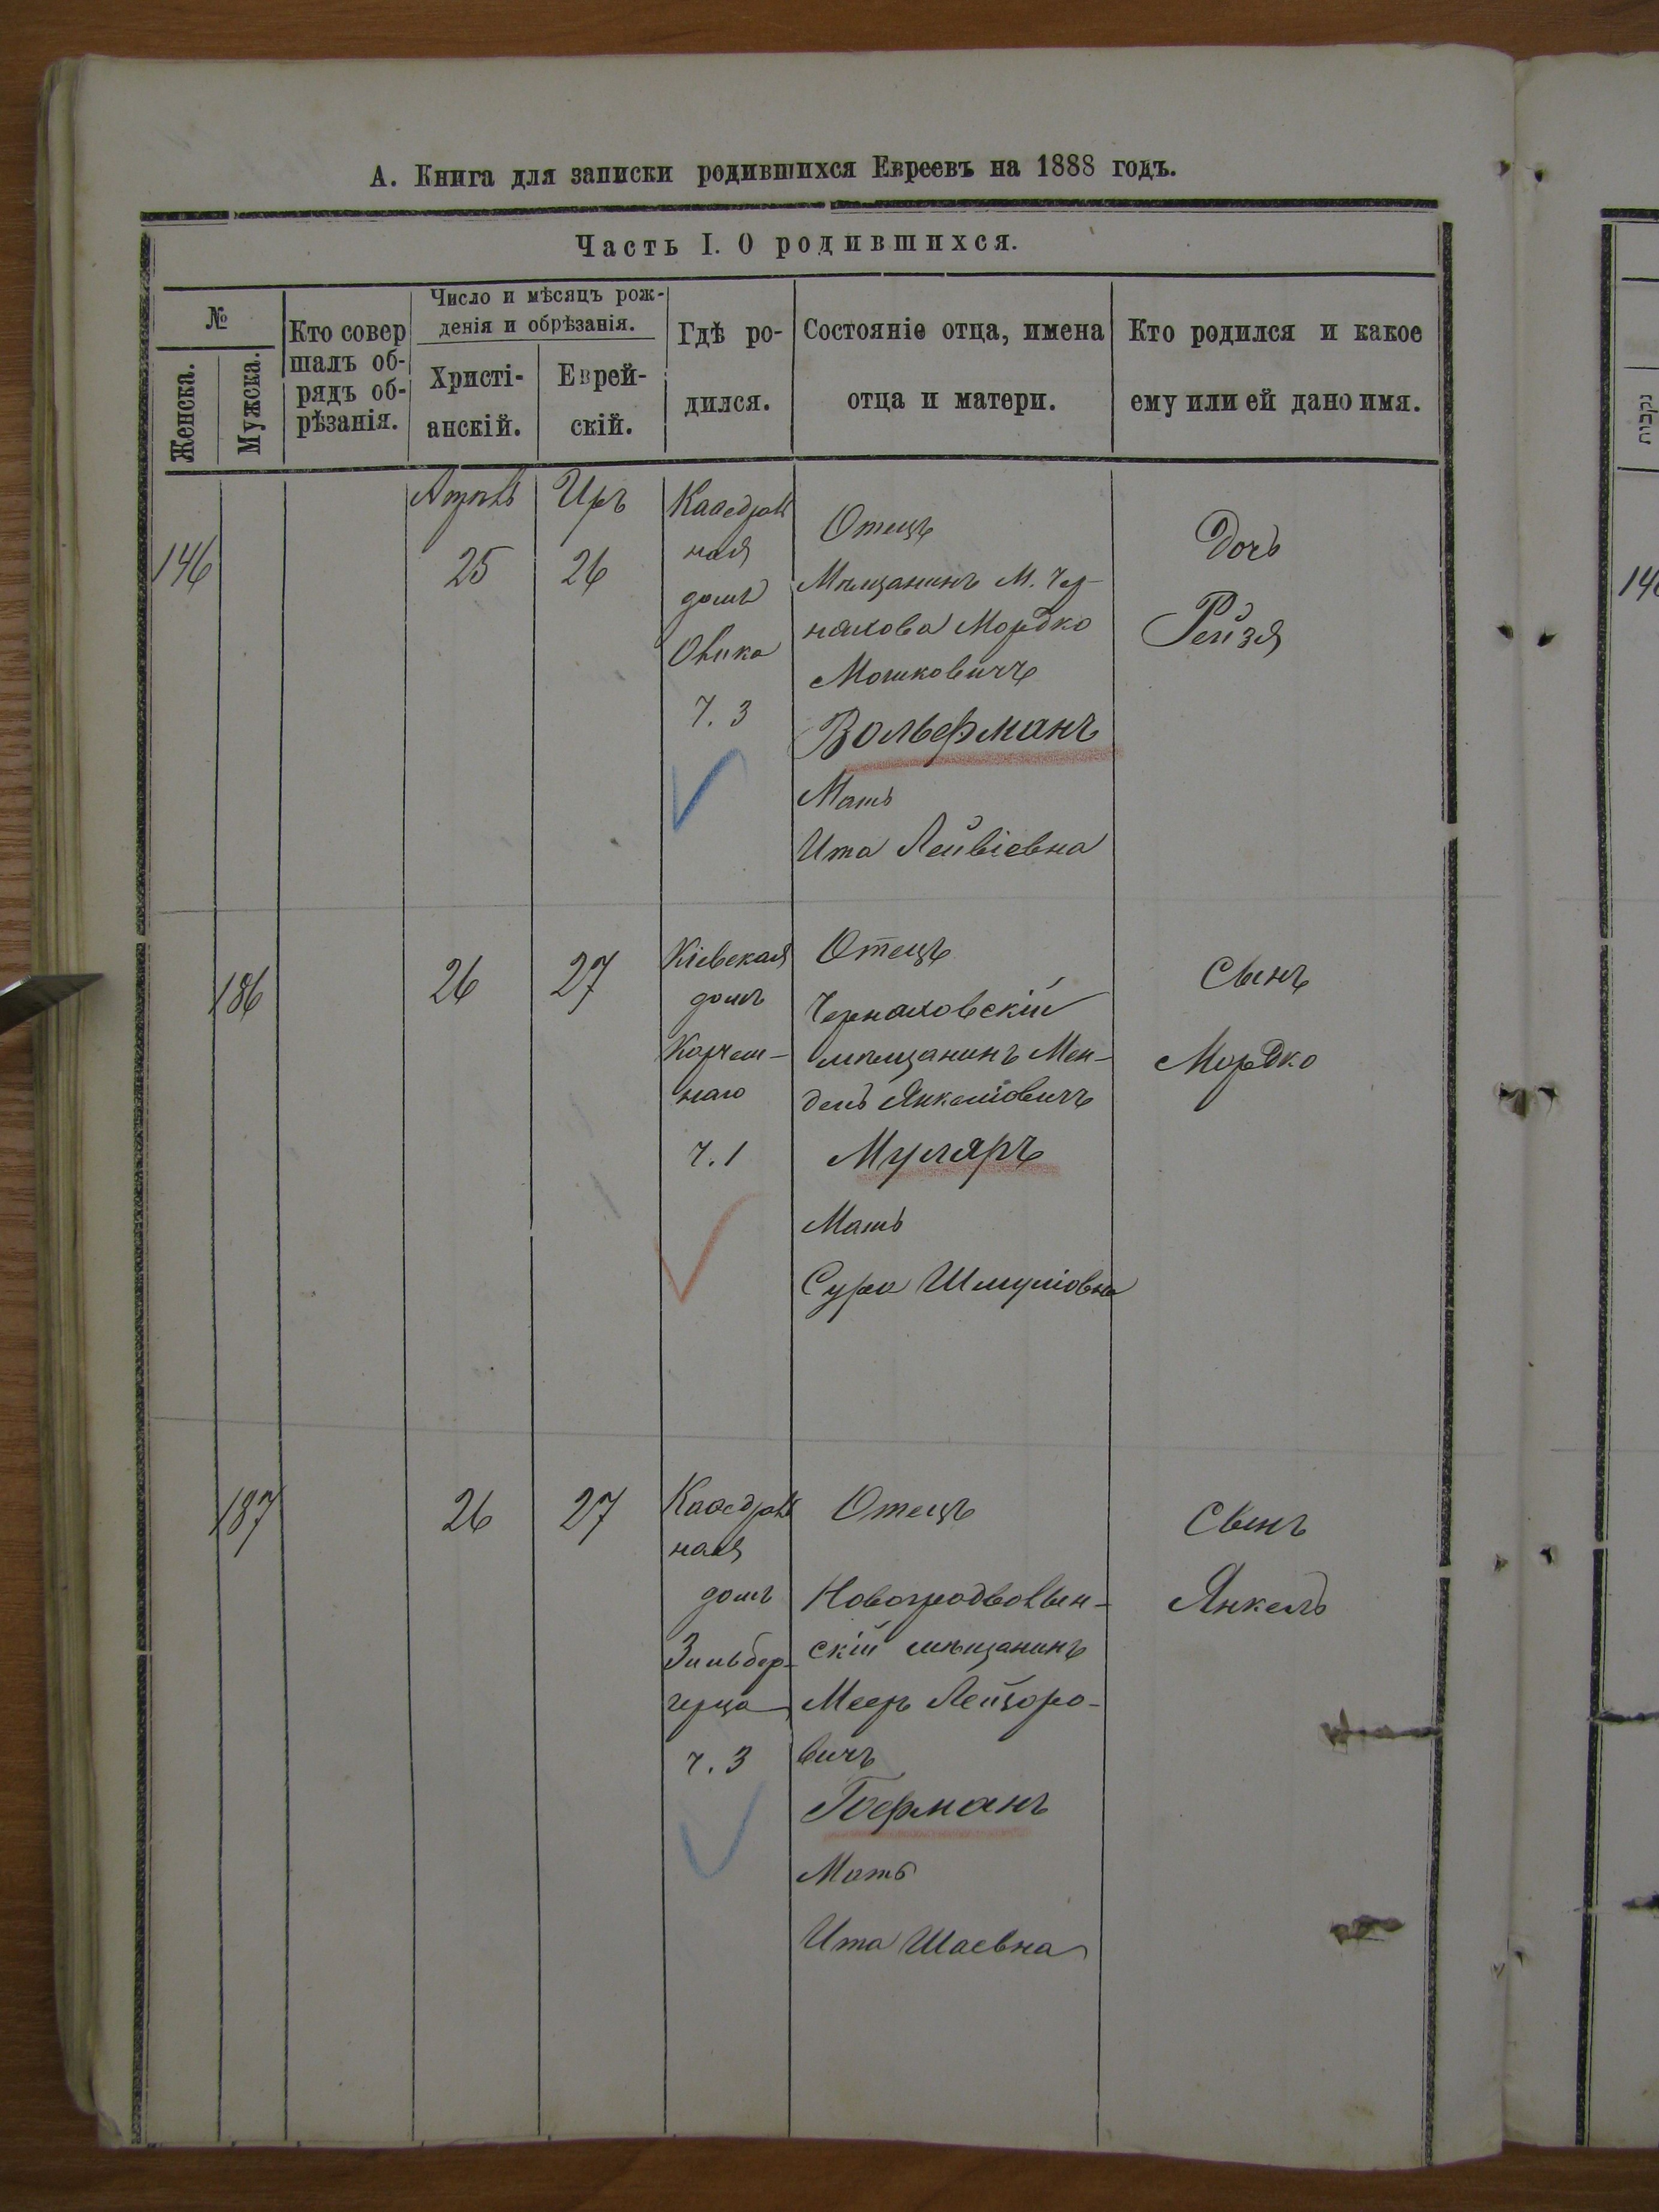 А. Книга для записки родившихся Евреевъ на 1888 годъ.
Часть I. О родившихся.
№
Женска.
Мужска.
Кто совер
шалъ об-
рядъ об-
рѣзанія.
Число и мѣсяцъ рож-
денія и обрѣзанія.
Христі-
анскій.
Еврей-
скій.
Гдѣ ро-
дился.
Состояніе отца, имена
отца и матери.
Кто родился и какое
ему или ей дано имя.
146
Апрѣль
25
Иръ
26
Каѳедраль
ная
домъ
ч. 3
Отецъ
Мѣщанинъ М. Чер-
нахова Мордко
Мошковичъ
Вольфманъ
Мать
Ита Лейвіевна
Дочь
Рейзя
186
26
27
Кіевская
домъ
ч. 1
Отецъ
Чернаховскій
мѣщанинъ Мен-
дель Янкеліовичъ
Муляръ
Мать
Сура Шмуліовна
Сынъ
Мордко
187
26
27
Каѳедраль
ная
домъ
Зильбер-
ч. 3
Отецъ
Новоградволын-
скій мѣщанинъ
Мееръ Лейзоро-
вичъ
Гофманъ
Мать
Ита Шаевна
Сынъ
Янкель
נקבות